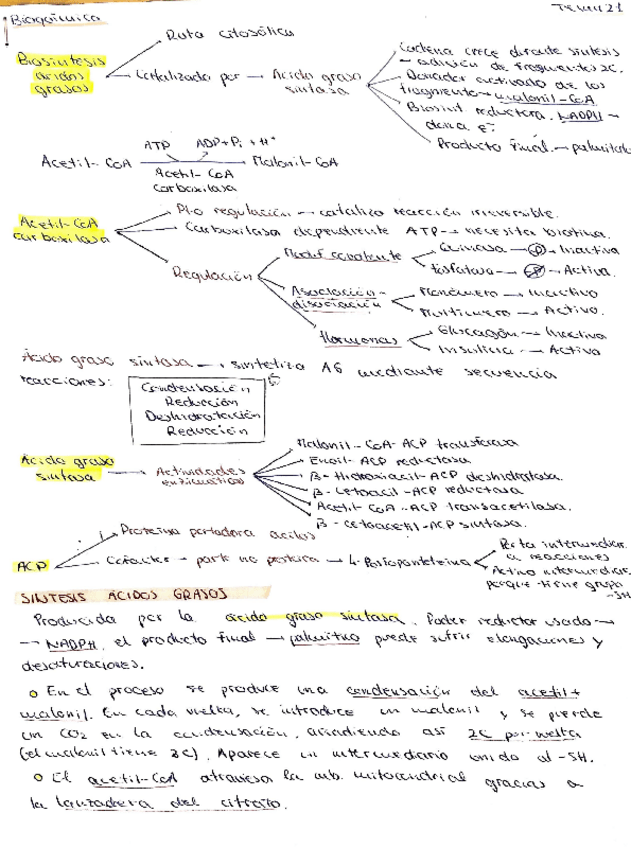 Bioquímica
TEMA 21
Biosíntesis ácidos grasos
Ruta citosólica
Catalizada por → Ácido graso sintasa
Cadena crece durante síntesis → adición de fragmentos 2C.
Donador activado de los fragmentos → malonil-CoA
Biosínt. reductora. NADPH → dona e-
Producto final → palmitato
ATP ADP+Pi + H+
Acetil-CoA → Malonil-CoA
Acetil-CoA carboxilasa
Acetil-CoA carboxilasa
Pto regulación → cataliza reacción irreversible.
Carboxilasa dependiente ATP → necesita biotina.
Regulación
Modif covalente
Quinasa → P → Inactiva
Fosfatasa → P → Activa.
Asociación-disociación
Monómero → Inactivo
Multímero → Activo.
Hormonas
Glucagón → Inactiva
Insulina → Activa
Ácido graso sintasa → sintetiza AG mediante secuencia
reacciones:
Condensación
Reducción
Deshidratación
Reducción
Ácido graso sintasa → Actividades enzimáticas
Malonil-CoA-ACP transferasa
Enoil-ACP reductasa
β-Hidroxiacil-ACP deshidratasa.
β-Cetoacil-ACP reductasa
Acetil-CoA-ACP transacetilasa.
β-cetoacetil-ACP sintasa.
ACP
Proteína portadora acilos
Carácter → parte no proteica → 4-fosfopanteteína
intermediar. a reacciones
Activa intermediar. porque tiene grupo -SH
SÍNTESIS ÁCIDOS GRASOS
Producida por la ácido graso sintasa. Poder reductor usado →
→ NADPH, el producto final → palmítico puede sufrir elongaciones y
desaturaciones.
En el proceso se produce una condensación del acetil +
malonil. En cada vuelta, se introduce un malonil y se pierde
un CO2 en la condensación, añadiendo así 2C por vuelta
(el malonil tiene 3C). Aparece un intermediario unido al -SH.
El acetil-CoA atraviesa la mb. mitocondrial gracias
a la lanzadera del citrato.